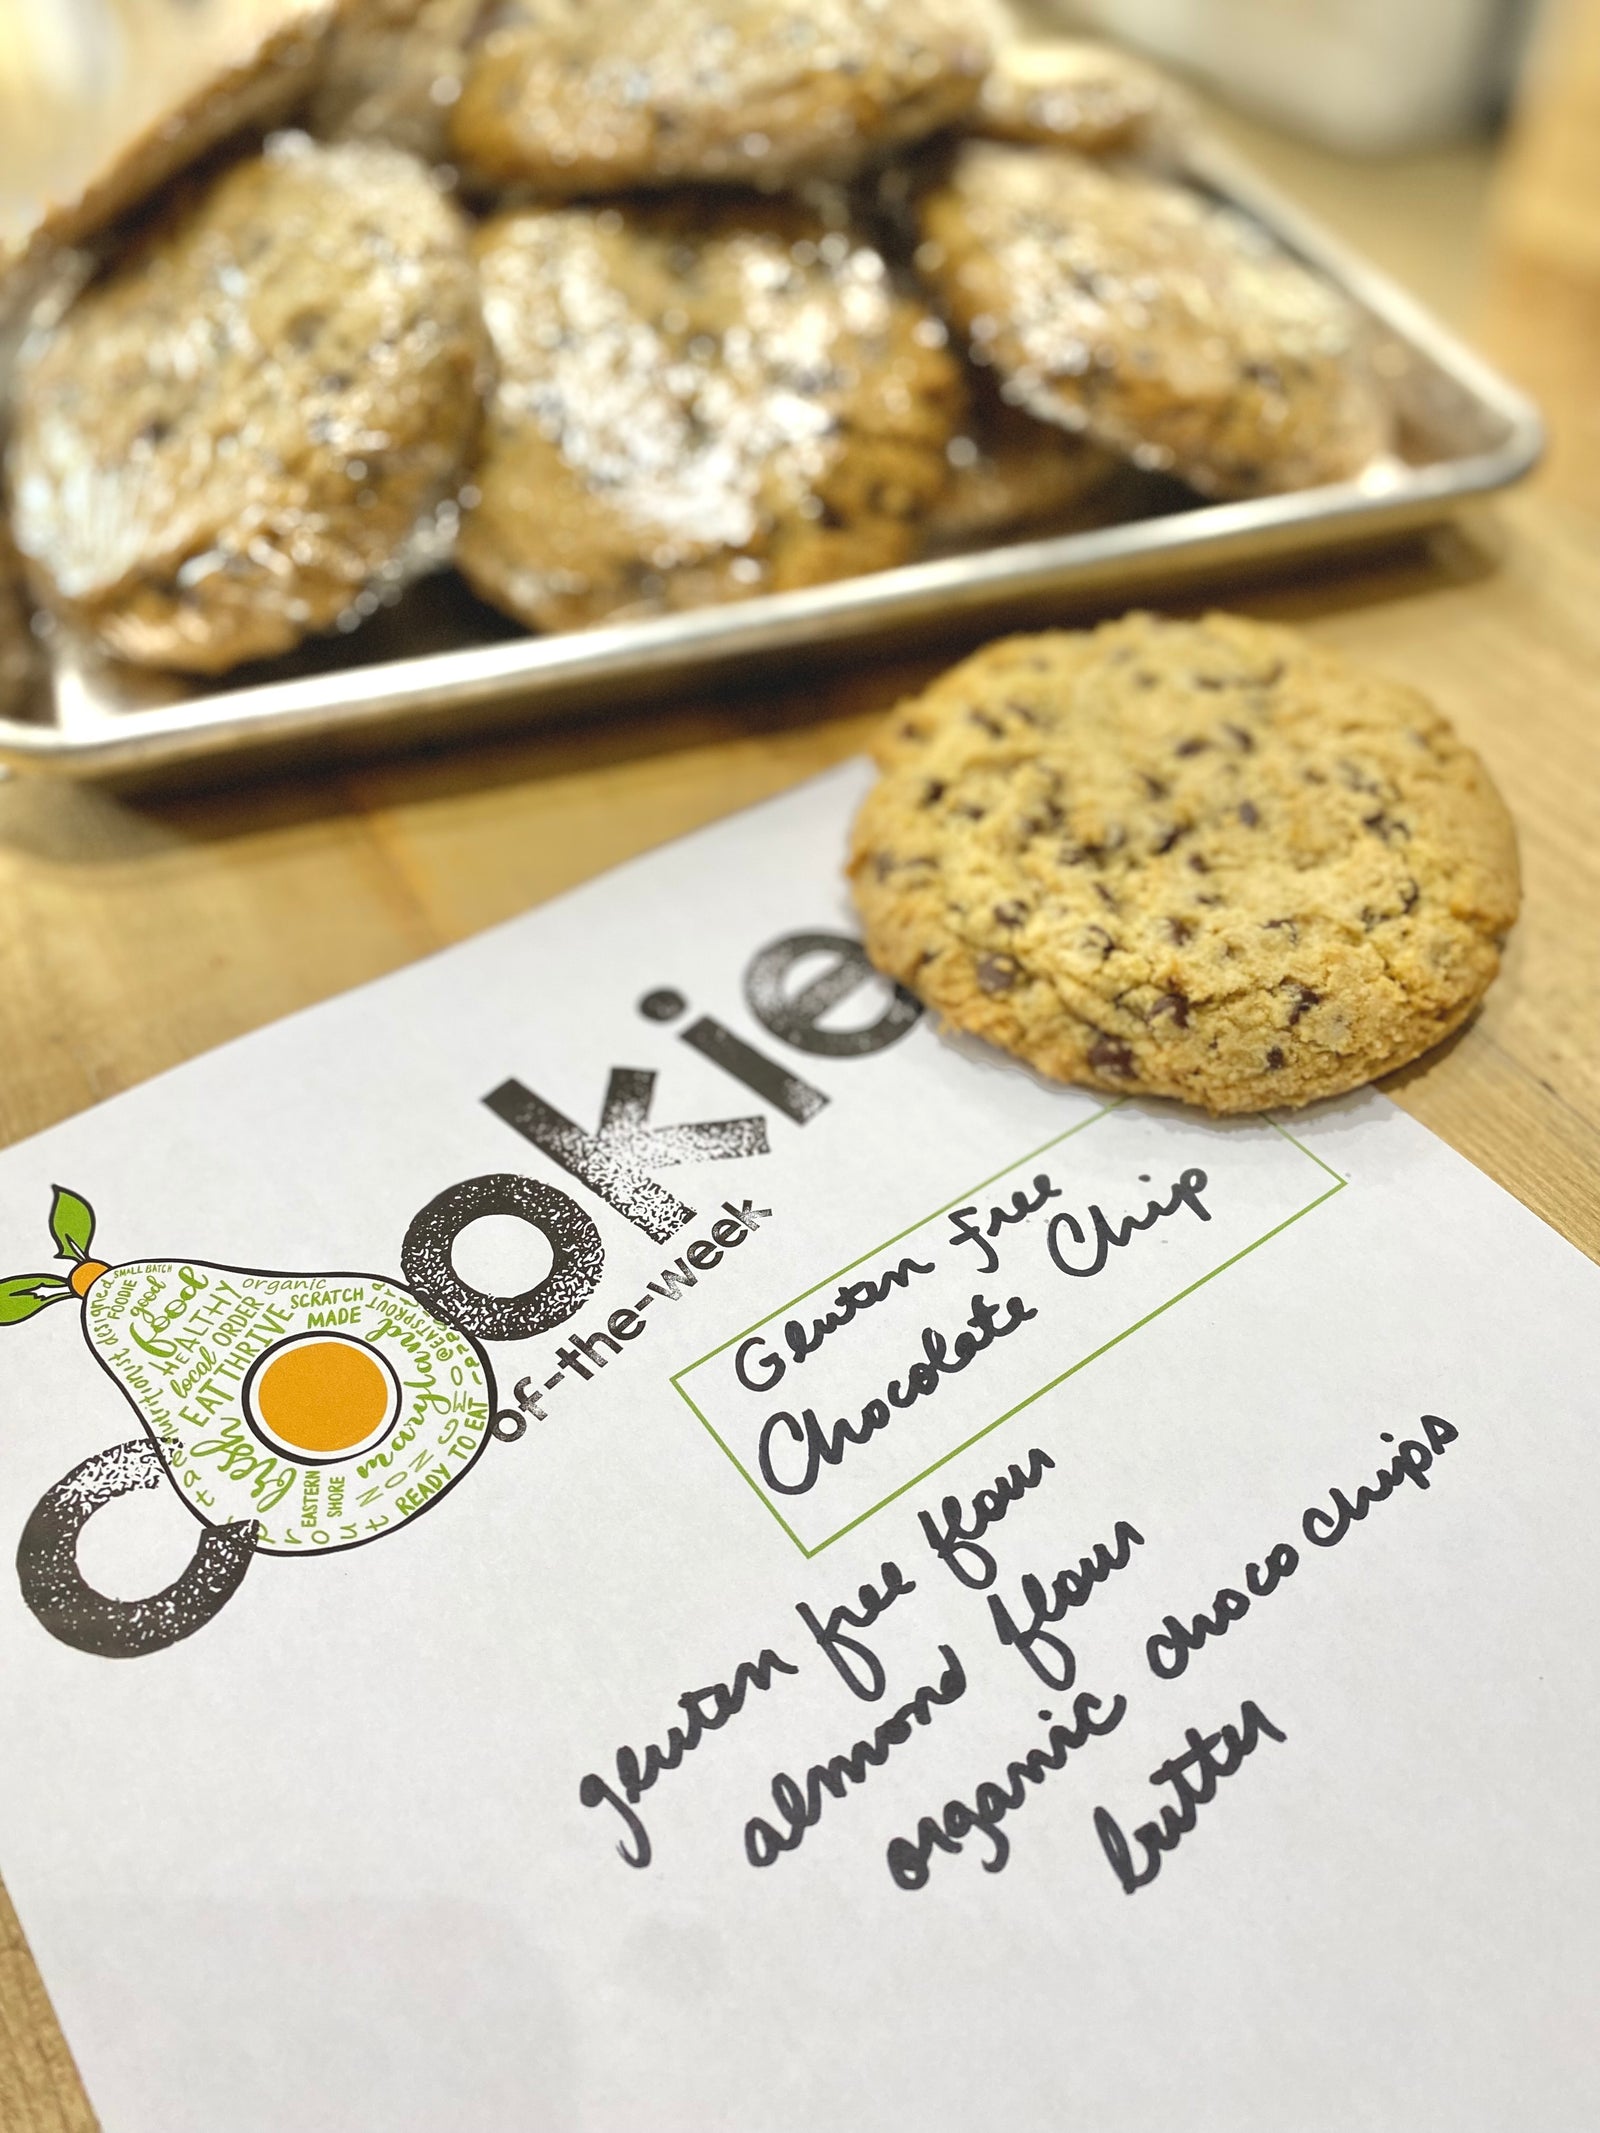 cookie
of-the-week
SMALL BATCH
FOODIE
good
food
HEALTHY
local ORDER
EAT THRIVE
fresh
organic
SCRATCH
MADE
maryland
EASTERN
SHORE
NON GMO
READY TO EAT
nutritionist designed
sprout
Gluten Free
Chocolate Chip
gluten free flour
almond flour
organic choco chips
butter